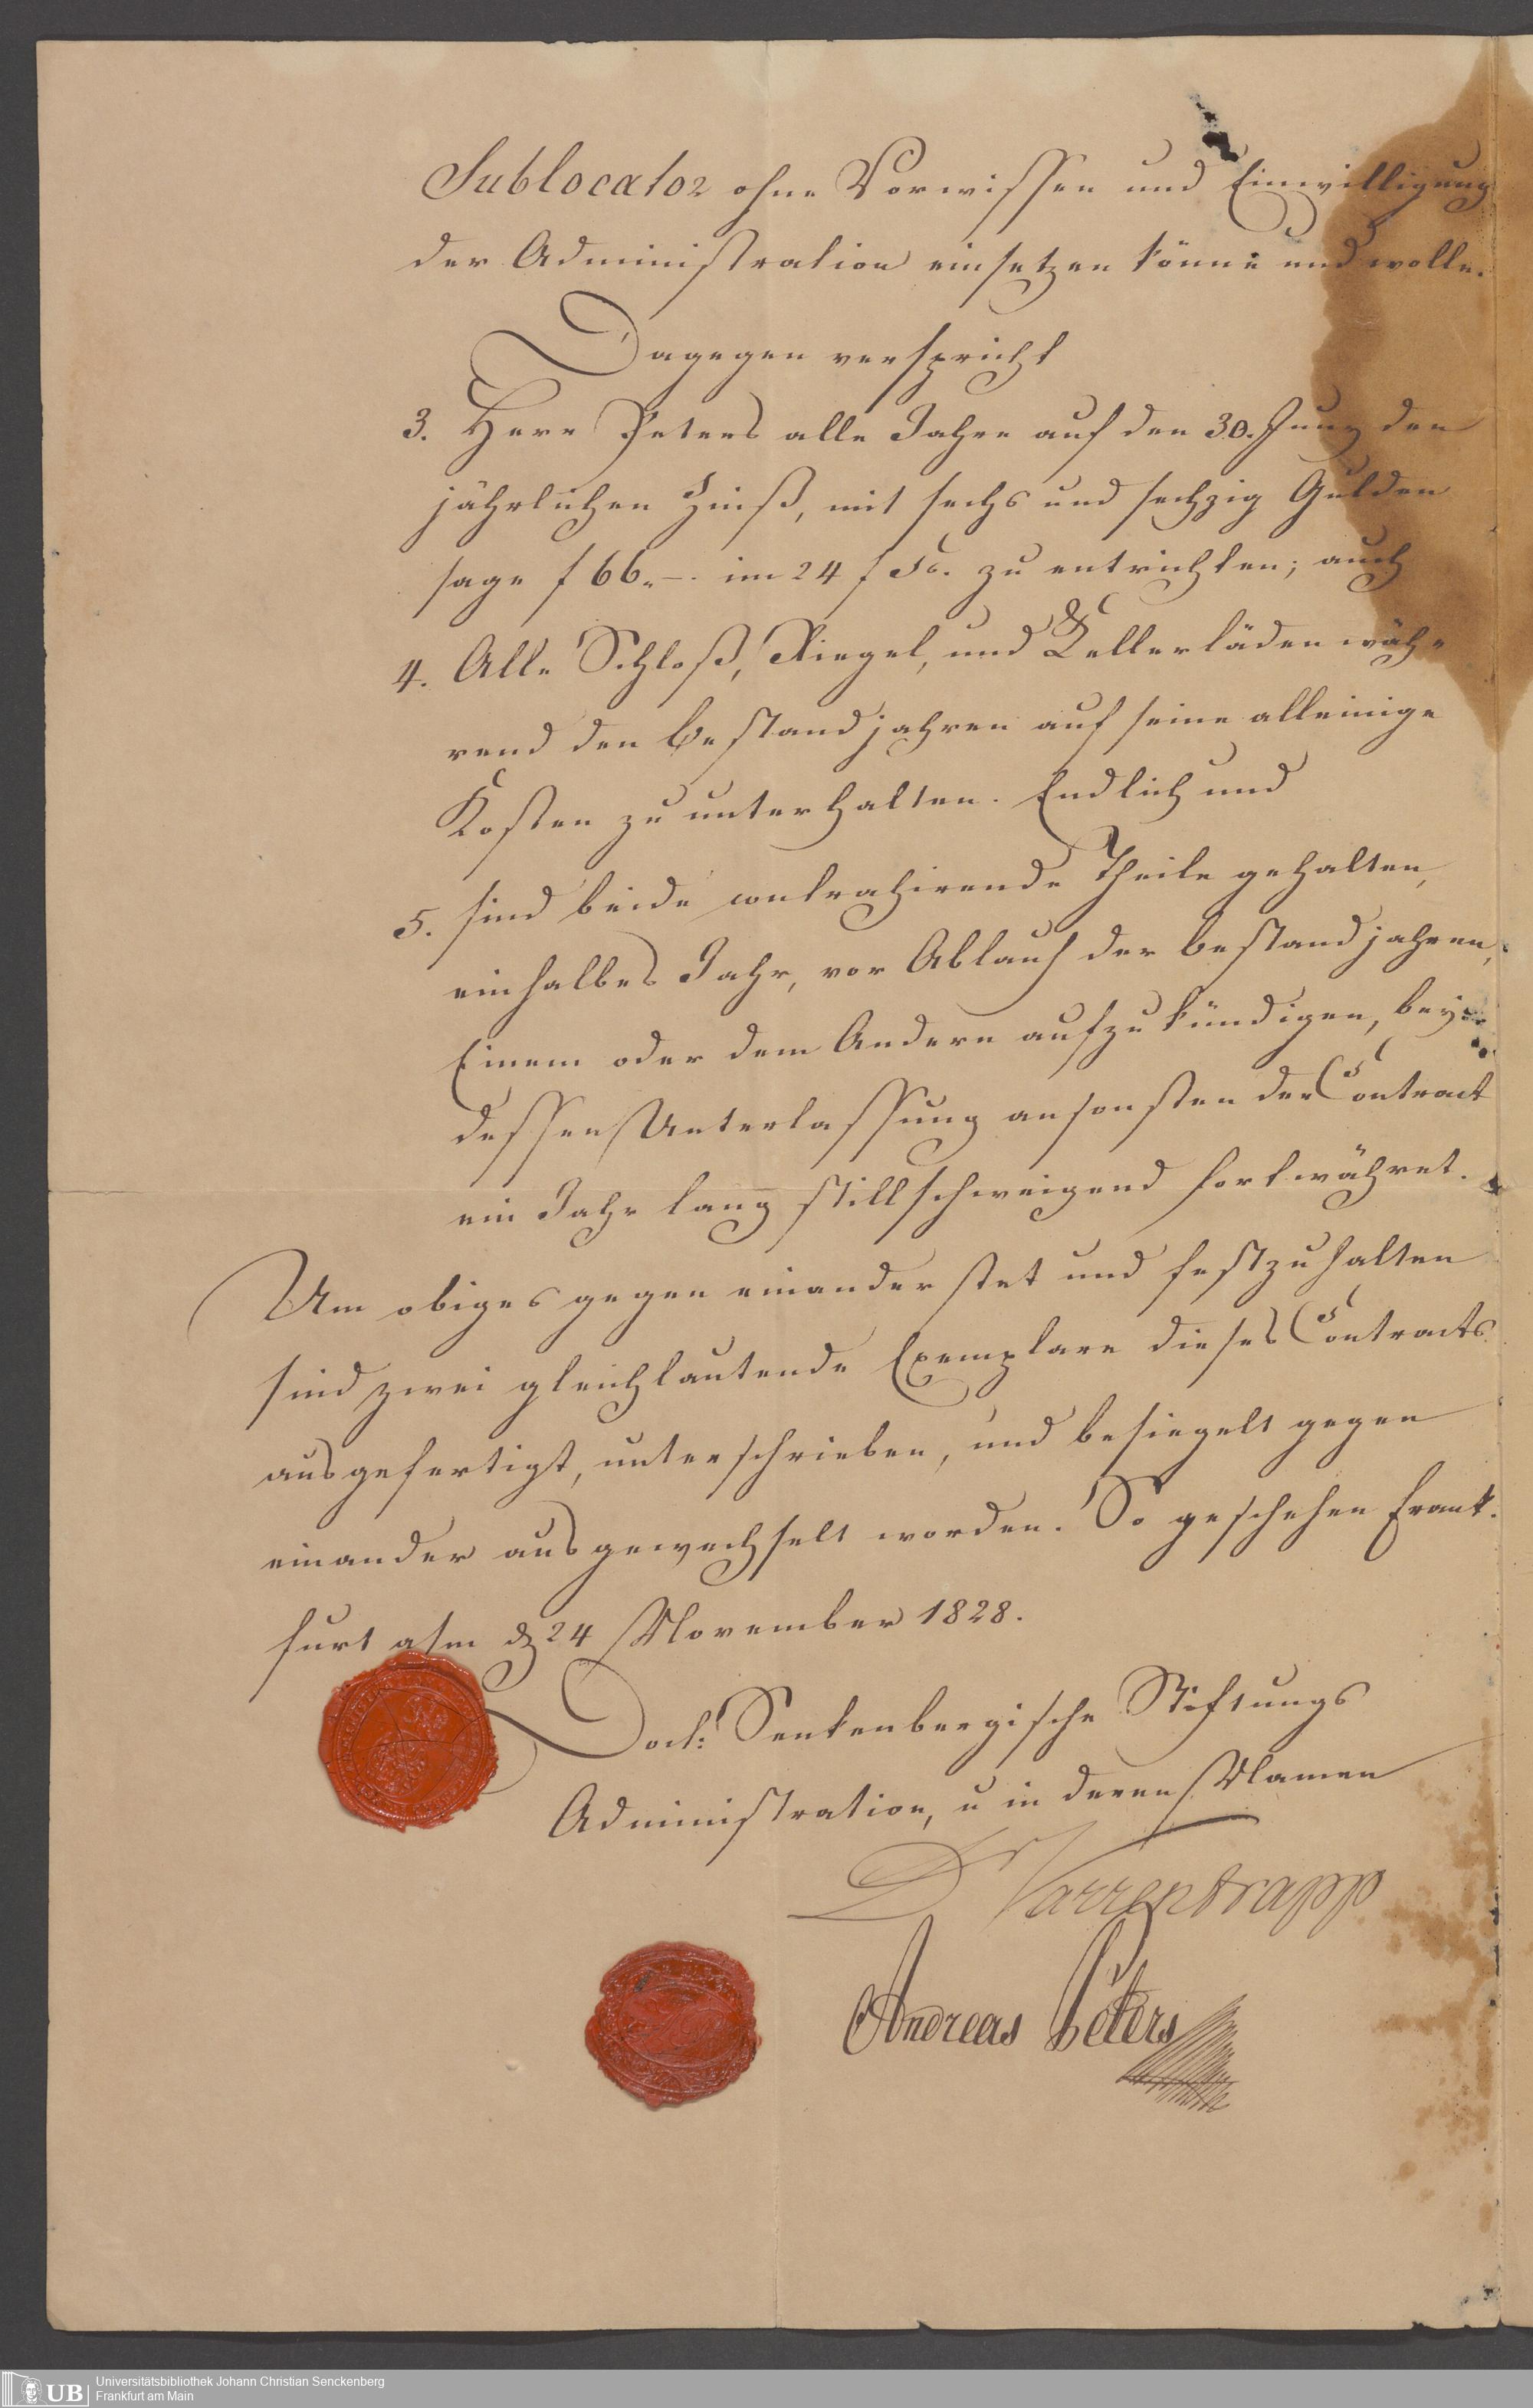 Sublocator ohne Vorwissen und Einwilligung
der Administration einsetzen könne und wolle.
Dagegen verspricht
3. Herr Peters alle Jahre auf den 30. Juny den
jährlichen Zinß, mit sechs und sechzig Gulden
sage f 66.–. im 24 f zu entrichten; auch
4. Alle Schloß, Riegel, und Kellerläden wäh-
rend den Bestandjahren auf seine alleinige
Kosten zu unterhalten. Endlich und
5. sind beide contrahirende Theile gehalten,
ein halbes Jahr, vor Ablauf der Bestandjahren,
Einem oder dem Andern aufzukündigen, bey
dessen Unterlassung ansonsten der Contract
ein Jahr lang stillschweigend fortwähret.
Um obiges gegen einander stet und festzuhalten
sind zwei gleichlautende Exemplare dieses Contracts
ausgefertigt, unterschrieben, und besiegelt gegen
einander ausgewechselt worden. So geschehen Frank-
furt a/m d 24 November 1828.
Doct: Senkenbergische Stiftungs
Administration, u in deren Namen
Dr Varrentrapp
Andreas Peters
UB
Universitätsbibliothek Johann Christian Senckenberg
Frankfurt am Main